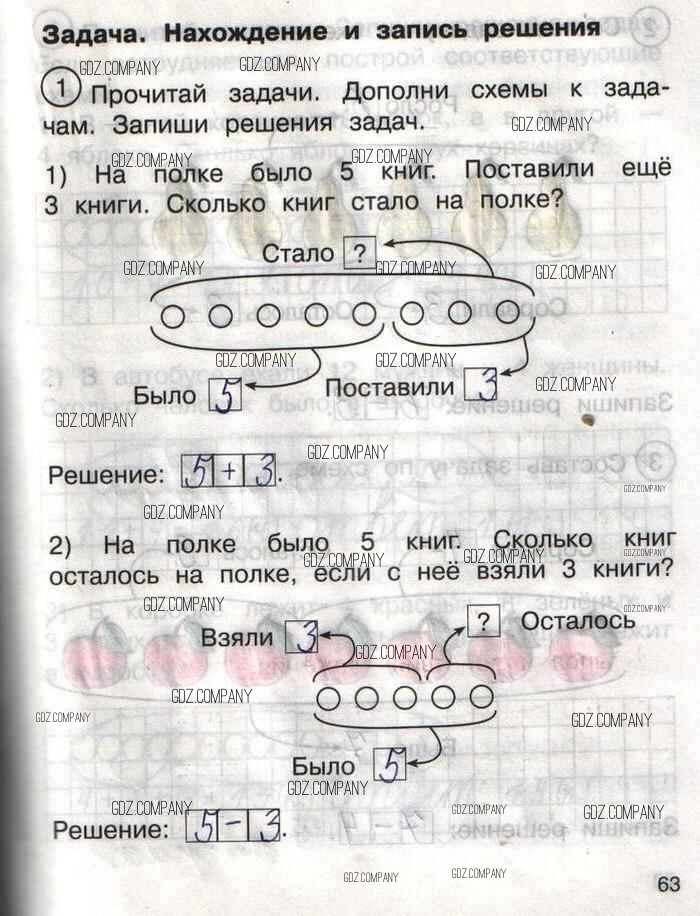 Задача. Нахождение и запись решения
GDZ.COMPANY GDZ.COMPANY
1 Прочитай задачи. Дополни схемы к зада-
чам. Запиши решения задач. GDZ.COMPANY
GDZ.COMPANY GDZ.COMPANY
1) На полке было 5 книг. Поставили ещё
3 книги. Сколько книг стало на полке?
Стало ?
GDZ.COMPANY GDZ.COMPANY GDZ.COMPANY
GDZ.COMPANY GDZ.COMPANY
Было 5 Поставили 3 GDZ.COMPANY
GDZ.COMPANY
GDZ.COMPANY
Решение: 5 + 3.
GDZ.COMPANY
GDZ.COMPANY
2) На полке было 5 книг. Сколько книг
GDZ.COMPANY GDZ.COMPANY GDZ.COMPANY
осталось на полке, если с неё взяли 3 книги?
GDZ.COMPANY GDZ.COMPANY
Взяли 3 ? Осталось
GDZ.COMPANY
GDZ.COMPANY
GDZ.COMPANY GDZ.COMPANY
Было 5
GDZ.COMPANY
GDZ.COMPANY GDZ.COMPANY GDZ.COMPANY
Решение: 5 - 3.
GDZ.COMPANY GDZ.COMPANY
63